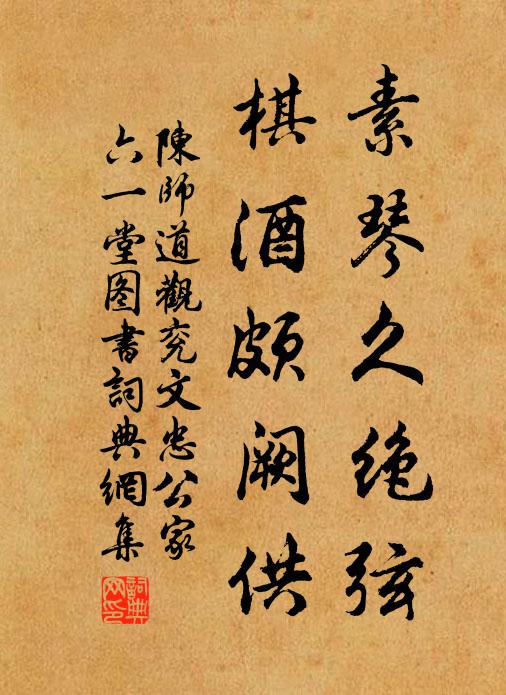 素琴久绝弦
棋酒頗阙供
陳師道觀兖文忠公家
六一堂图書詞典網集
詞典
网印